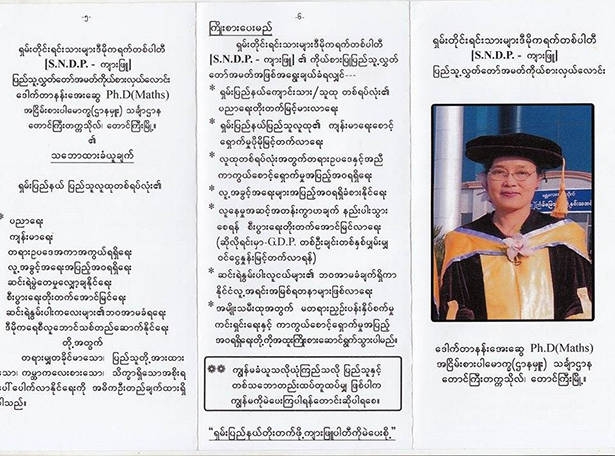 -၅-
ရှမ်းတိုင်းရင်းသားများဒီမိုကရက်တစ်ပါတီ
[S.N.D.P. - ကျားဖြူ]
ပြည်သူ့လွှတ်တော်အမတ်ကိုယ်စားလှယ်လောင်း
ဒေါက်တာနန်းအေးဆွေ Ph.D(Maths)
အငြိမ်းစားပါမောက္ခ(ဌာနမှူး) သင်္ချာဌာန
တောင်ကြီးတက္ကသိုလ်၊ တောင်ကြီးမြို့။
၏
သဘောထားခံယူချက်
ရှမ်းပြည်နယ် ပြည်သူလူထုတစ်ရပ်လုံး၏
* ပညာရေး
ကျန်းမာရေး
တရားဥပဒေအကာအကွယ်ရရှိရေး
လူ့အခွင့်အရေးအပြည့်အဝရရှိရေး
ဆင်းရဲမွဲတေမှုလျှော့ချနိုင်ရေး
စီးပွားရေးတိုးတက်အောင်မြင်ရေး
ဆင်းရဲနွမ်းပါးကလေးများ၏ဘဝအာမခံရရေး
ဒီမိုကရေစီလူ့ဘောင်သစ်တည်ဆောက်နိုင်ရေး
တို့အတွက်
တရားမျှတခိုင်မာသော၊ ပြည်သူတို့အားထား
သော၊ ကမ္ဘာကလေးစားသော၊ သိက္ခာရှိသောအစိုးရ
ပေါ်ပေါက်လာနိုင်ရေးကို အဓိကဦးတည်ချက်ထားရှိ
ပါသည်။
-၆-
ကြိုးစားပေးမည်
ရှမ်းတိုင်းရင်းသားများဒီမိုကရက်တစ်ပါတီ
[S.N.D.P. - ကျားဖြူ] ၏ ကိုယ်စားပြုပြည်သူ့လွှတ်
တော်အမတ်အဖြစ်အရွေးချယ်ခံရလျှင်---
* ရှမ်းပြည်နယ်ကျောင်းသား/သူထု တစ်ရပ်လုံး၏
ပညာရေးတိုးတက်မြင့်မားလာရေး
* ရှမ်းပြည်နယ်ပြည်သူလူထု၏ ကျန်းမာရေးစောင့်
ရှောက်မှုပိုမိုမြင့်တက်လာရေး
* လူထုတစ်ရပ်လုံးအတွက်တရားဥပဒေနှင့်အညီ
ကာကွယ်စောင့်ရှောက်မှုအပြည့်အဝရရှိရေး
* လူ့အခွင့်အရေးများအပြည့်အဝရရှိခံစားနိုင်ရေး
* လူနေမှုအဆင့်အတန်းကွာဟချက် နည်းပါးသွား
စေရန် စီးပွားရေးတိုးတက်အောင်မြင်လာရေး
(ဆိုလိုရင်းမှာ-G.D.P. တစ်ဦးချင်းတစ်နှစ်ပျမ်းမျှ
ဝင်ငွေနှုန်းမြင့်တက်လာရန်)
* ဆင်းရဲနွမ်းပါးလူငယ်များ၏ ဘဝအာမခံချက်ရှိကာ
နိုင်ငံ့လူ့အရင်းအမြစ်ရတနာများဖြစ်လာရေး
* အမျိုးသမီးထုအတွက် မတရားညှဉ်းပန်းနှိပ်စက်မှု
ကင်းရှင်းရေးနှင့် ကာကွယ်စောင့်ရှောက်မှုအပြည့်
အဝရရှိရေးတို့ကိုအထူးကြိုးစားဆောင်ရွက်သွားပါမည်။
** ကျွန်မခံယူသလိုယုံကြည်သလို ပြည်သူနှင့်
တစ်သဘောတည်းထပ်တူထပ်မျှ ဖြစ်ပါက
ကျွန်မကိုမဲပေးကြပါရန်တောင်းဆိုပါရစေ။
"ရှမ်းပြည်နယ်တိုးတက်ဖို့ကျားဖြူပါတီကိုမဲပေးစို့"
ရှမ်းတိုင်းရင်းသားများဒီမိုကရက်တစ်ပါတီ
[S.N.D.P. - ကျားဖြူ]
ပြည်သူ့လွှတ်တော်အမတ်ကိုယ်စားလှယ်လောင်း
ဒေါက်တာနန်းအေးဆွေ Ph.D(Maths)
အငြိမ်းစားပါမောက္ခ(ဌာနမှူး) သင်္ချာဌာန
တောင်ကြီးတက္ကသိုလ်၊ တောင်ကြီးမြို့။